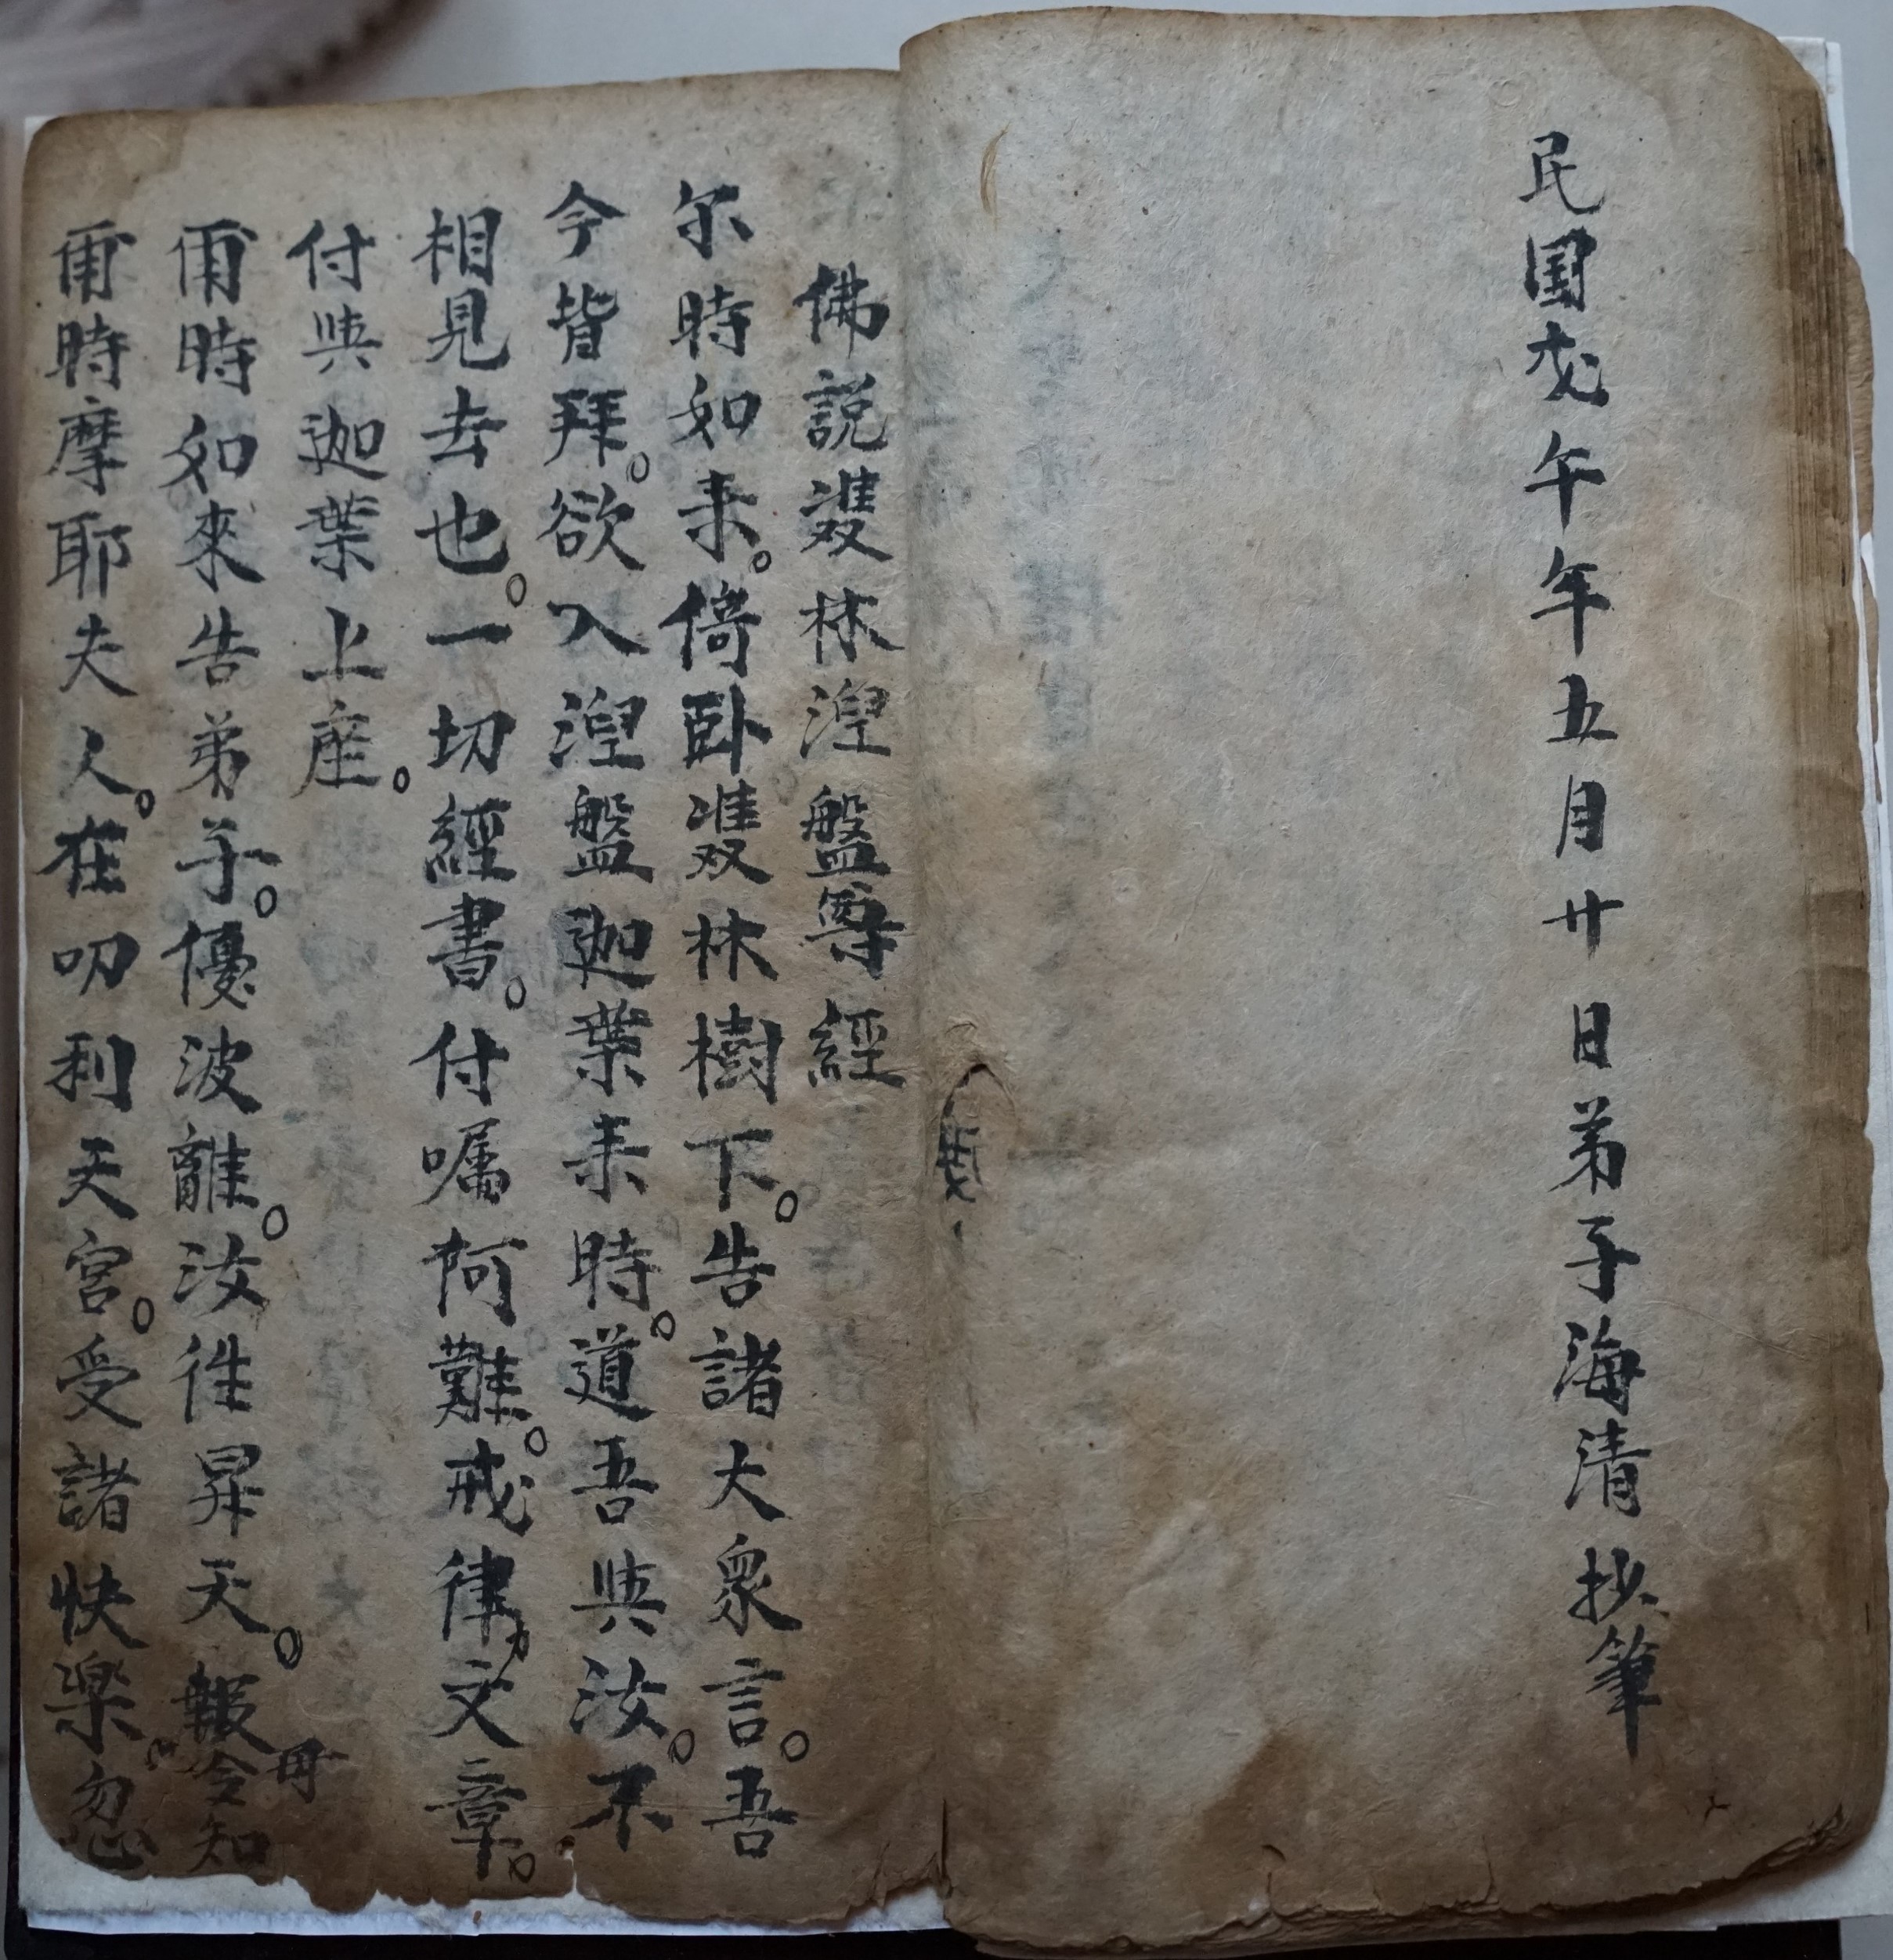 民囯戊午年五月廿日弟子海清抄筆
佛説雙林湼盤尊經
尔時如来。倚卧雙林樹下。告諸大衆言。吾
今皆拜。欲入湼盤迦葉来時。道吾與汝。不
相見去也。一切經書。付嘱阿難。戒律文章。
付與迦葉上座。
爾時如來告弟子。優波離。汝徃昇天。報母令知
爾時摩耶夫人。在叨利天宮。受諸快楽。忽